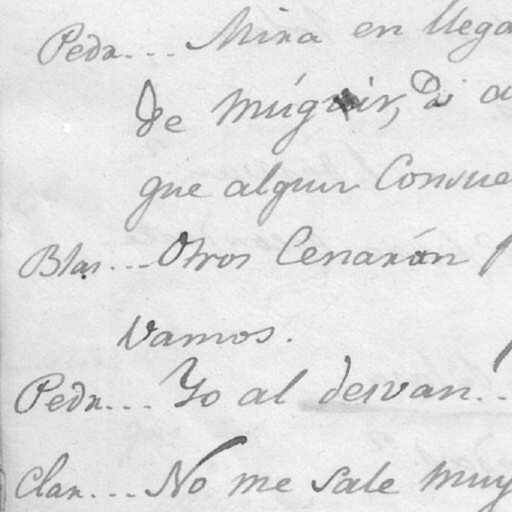 Pedr... Mira en llega
de Múgrir, Di a
que algun Consue
Blas... Otros Cenarán
Vamos.
Pedr... Yo al desvan...
Clar... No me sale muy